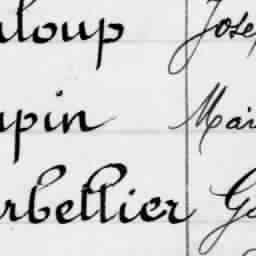 uloup Jose
upin Mai
rbellier Ge